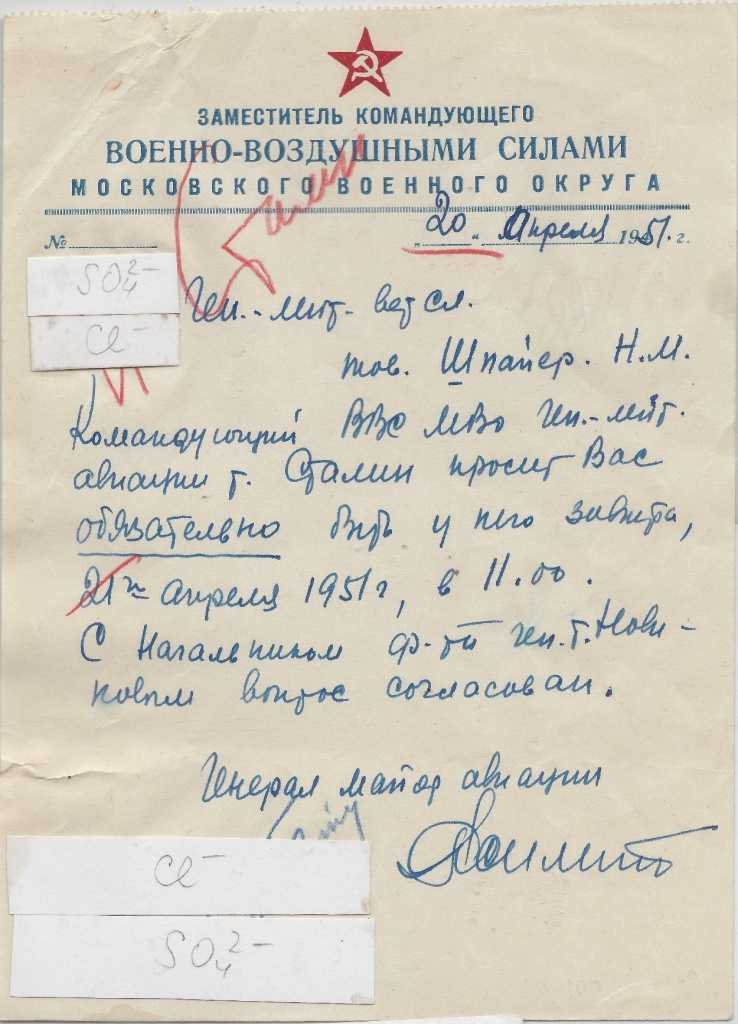 ЗАМЕСТИТЕЛЬ КОМАНДУЮЩЕГО
ВОЕННО-ВОЗДУШНЫМИ СИЛАМИ
МОСКОВСКОГО ВОЕННОГО ОКРУГА
№ „20„ Апреля 1951. г.
SO₄²⁻
Cl⁻
Ген.-лейт. вет сл.
тов. Шпайер. Н.М.
Командующий ВВС МВО Ген.-лейт.
авиации т. Сталин просит Вас
обязательно быть у него завтра,
21го апреля 1951г, в 11.00.
С Начальником ф-та ген. т. Нови-
ковым вопрос согласован.
Генерал майор авиации
Cl⁻
SO₄²⁻